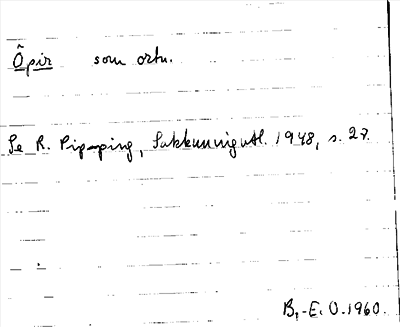 Õpir som ortn.
Se R. Pipping, Sakkunnigutl. 1948, s. 27.
B.-E. O. 1960.